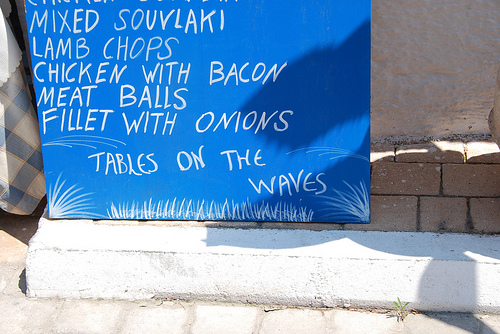 MIXED SOUVLAKI
LAMB CHOPS
CHICKEN WITH BACON
MEAT BALLS
FILLET WITH ONIONS
TABLES ON THE
WAVES